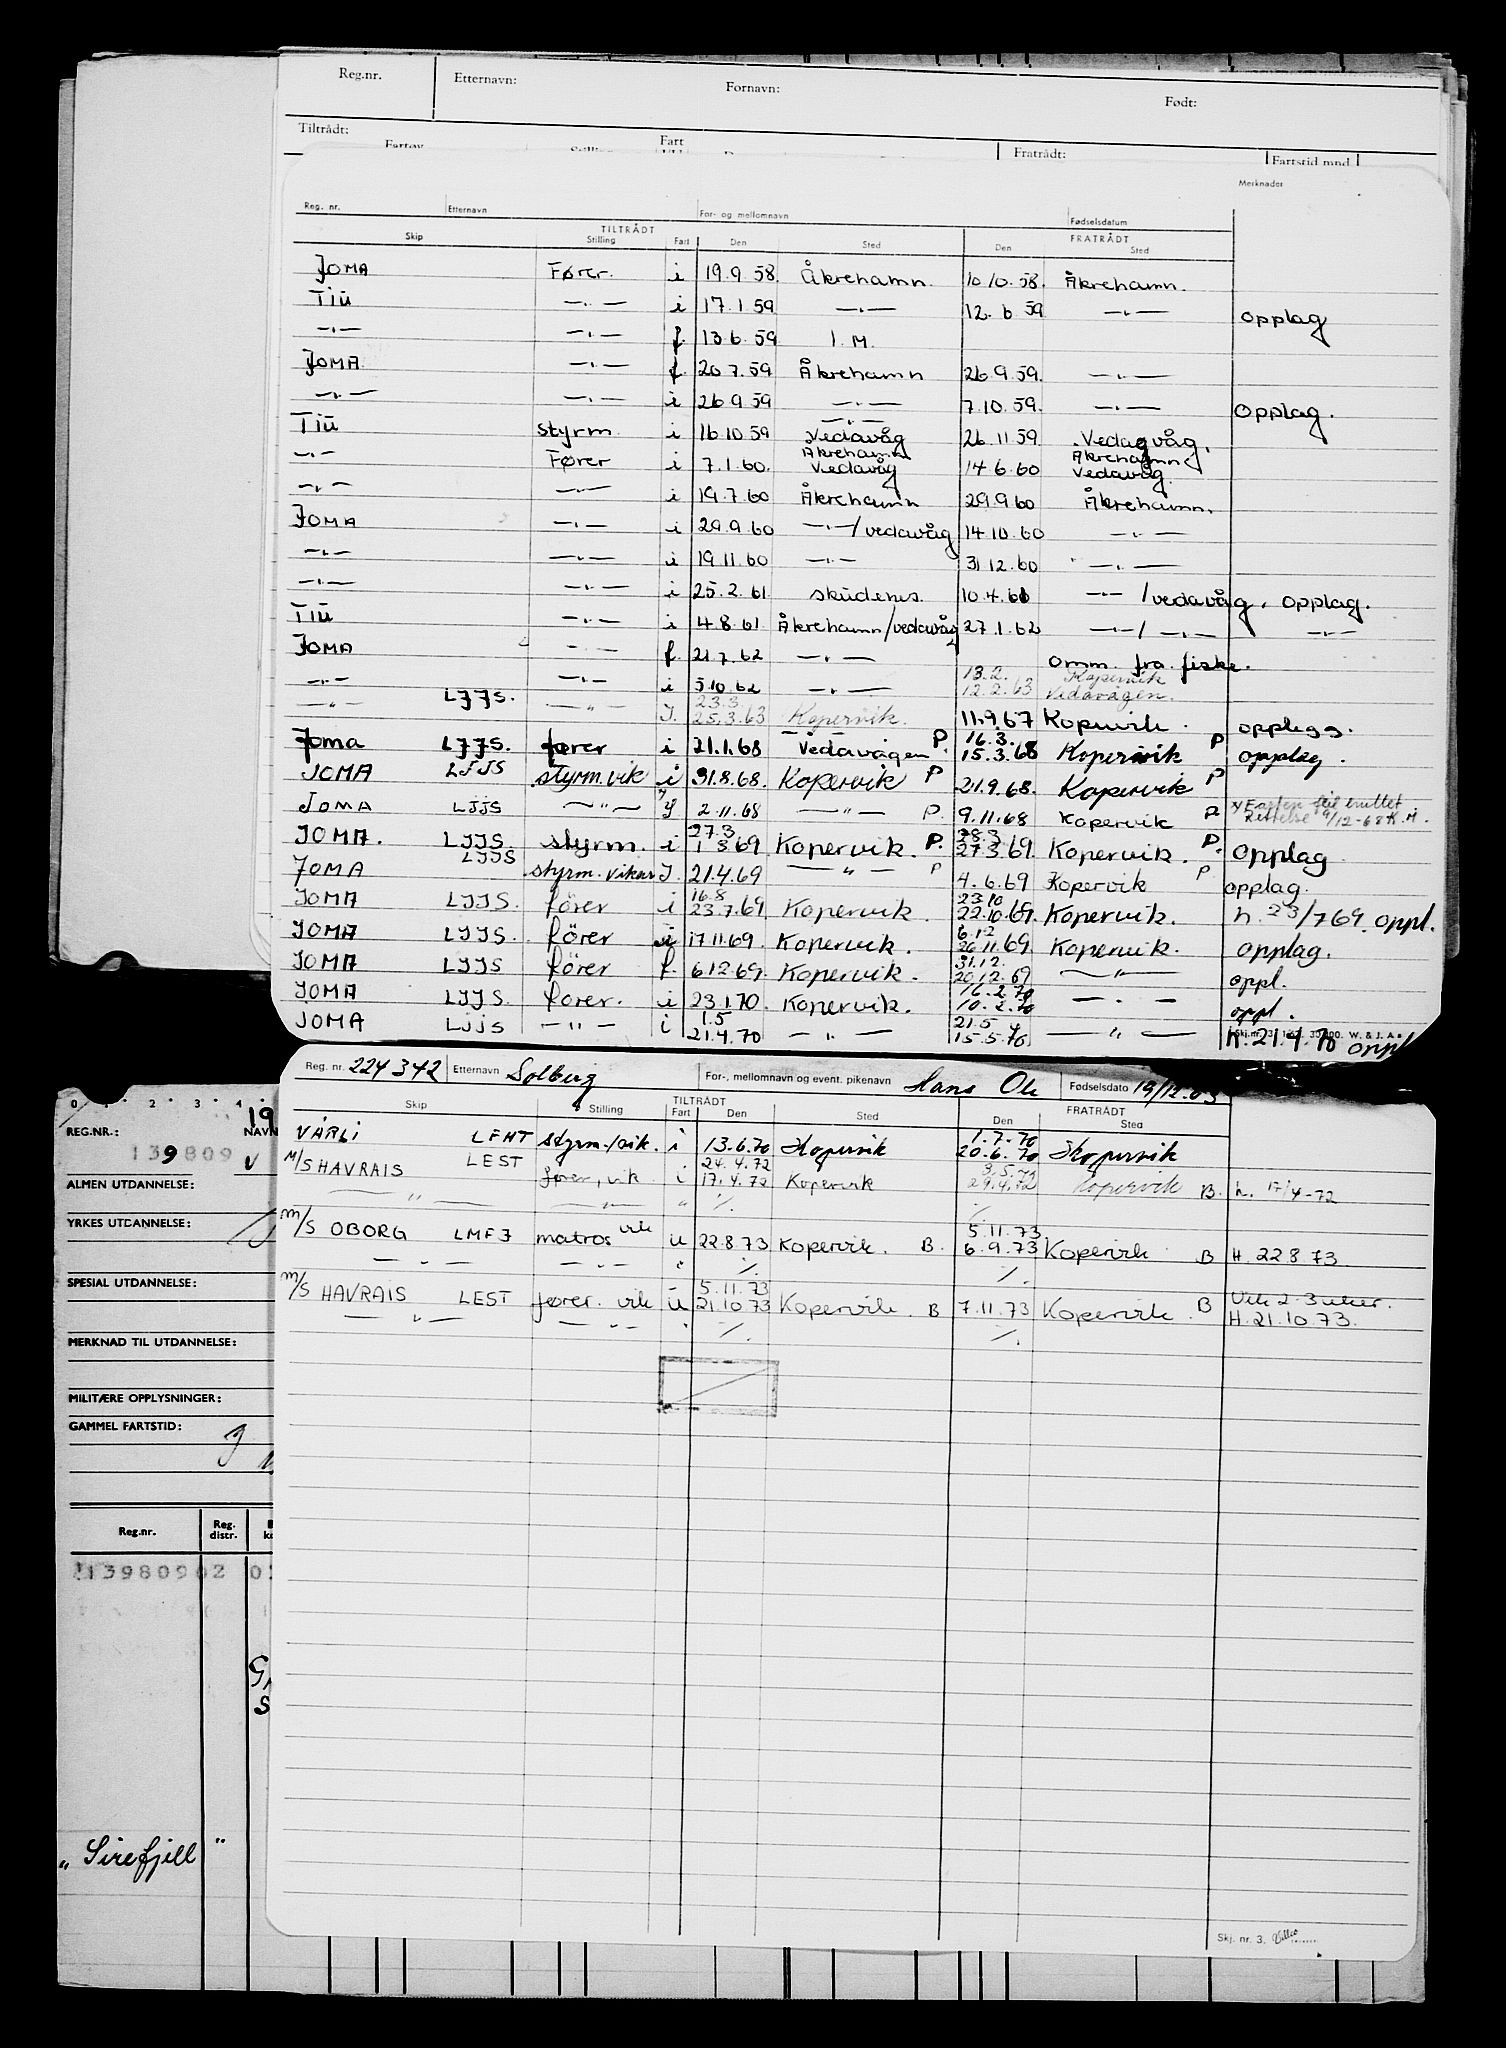 Reg.nr. Etternavn: Fornavn: Født:
Tiltrådt: Fart Fratrådt: Fartstid mnd.
Merknader
Reg. nr. Etternavn For- og mellomnavn Fødselsdatum
TILTRÅDT FRATRÅDT
Skip Stilling Fart Den Sted Den Sted
JOMA Fører. i 19.9.58. Åkrehamn. 10 10.58. Åkrehamn.
Tiu —"— i 17.1 59 —"— 12.6 59 —"— opplag
—"— —"— f. 13.6.59 I.M.
JOMA —"— f. 20 7.59 Åkrehamn 26.9.59. —"—
—"— —"— i 26 9 59 —"— 7.10.59. —"— opplag.
Tiu styrm i 16.10 59 Vedavåg 26.11 59. Vedavåg.
—"— Fører i 7.1.60. Åkrehamn Vedavåg 14 6.60 Åkrehamn Vedavåg.
—"— —"— i 19.7.60 Åkrehamn 29.9 60 Åkrehamn.
JOMA —"— i 29.9.60 —"—/vedavåg 14.10.60 —"—
—"— —"— i 19.11.60 —"— 31 12.60 —"—
—"— —"— i 25.2.61. skudenes. 10.4.61 —"— /vedavåg. opplag.
Tiu —"— i 4.8.61 Åkrehamn/vedavåg 27.1.62 —"—/—"— —"—
JOMA —"— f. 21.7.62 —"— omm. fra fiske.
—"— —"— i 5.10.62 —"— 13.2. 12.2.63 Kopervik Vedavågen.
—"— LJJS. —"— I. 23.3 25.3.63 Kopervik. 11.9.67 Kopervik. opplegg.
Joma LJJS. fører i 21.1.68 Vedavågen P. 16.3. 15.3.68 Kopervik P opplag.
JOMA LJJS styrm.vik i 31.8.68. Kopervik P 21.9.68. Kopervik P
JOMA LJJS —"— 2.11.68 —"— P. 9.11.68 Kopervik P
JOMA. LJJS. styrm. i 27.3 1 3 69 Kopervik. P. 28.3 27.3.69. Kopervik. P. opplag
JOMA LJJS styrm. vikar I. 21.4.69 —"— P 4.6.69 Kopervik P opplag.
JOMA LJJS. förer i 16.8 23.7.69 Kopervik. 23 10 22.10.69. Kopervik. h. 23/7 69. oppl.
JOMA LJJS. förer i 17.11.69. Kopervik. 6.12 26.11.69 Kopervik. opplag.
JOMA LJJS förer f. 6.12.69. Kopervik. 31.12. 20.12.69 —"— oppl.
JOMA LJJS. förer. i 23.1.70. Kopervik. 16.2.70 10.2.70 —"— oppl.
JOMA LJJS —"— i 1.5 21.4.70 —"— 21.5 15.5.70 —"— h. 21.4.70 oppl
Reg. nr. 224342 Etternavn Solberg For-, mellomnavn og event. pikenavn Hans Ole Fødselsdato 19/12.03
TILTRÅDT FRATRÅDT
Skip Stilling Fart Den Sted Den Sted
VARLI LEHT styrm./vik. i 13.6.70 Kopervik 1.7.70 20.6.70 Kopervik
M/S HAVRAIS LEST fører, vik i 24.4.72 17.4.72 Kopervik 3.5.72 29.4.72 Kopervik B. h. 17/4-72
—"— —"— " ./. ./.
M/S OBORG LMFJ matros vik u 22.8.73 Kopervik. B. 5.11.73. 6.9.73 Kopervik B H. 22.8.73.
—"— —"— " ./. ./.
M/S HAVRAIS LEST fører. vik u 5.11.73 21.10.73 Kopervik. B 7.11.73 Kopervik. B Vik 2-3 uker. H. 21.10.73.
—"— —"— " ./. ./.
0 1 2 3 4
REG.NR.: NAVN
139809
ALMEN UTDANNELSE:
YRKES UTDANNELSE:
SPESIAL UTDANNELSE:
MERKNAD TIL UTDANNELSE:
MILITÆRE OPPLYSNINGER:
GAMMEL FARTSTID:
Reg.nr. Reg. distr.
13980902
„Sirefjell"
Skj. nr. 3.